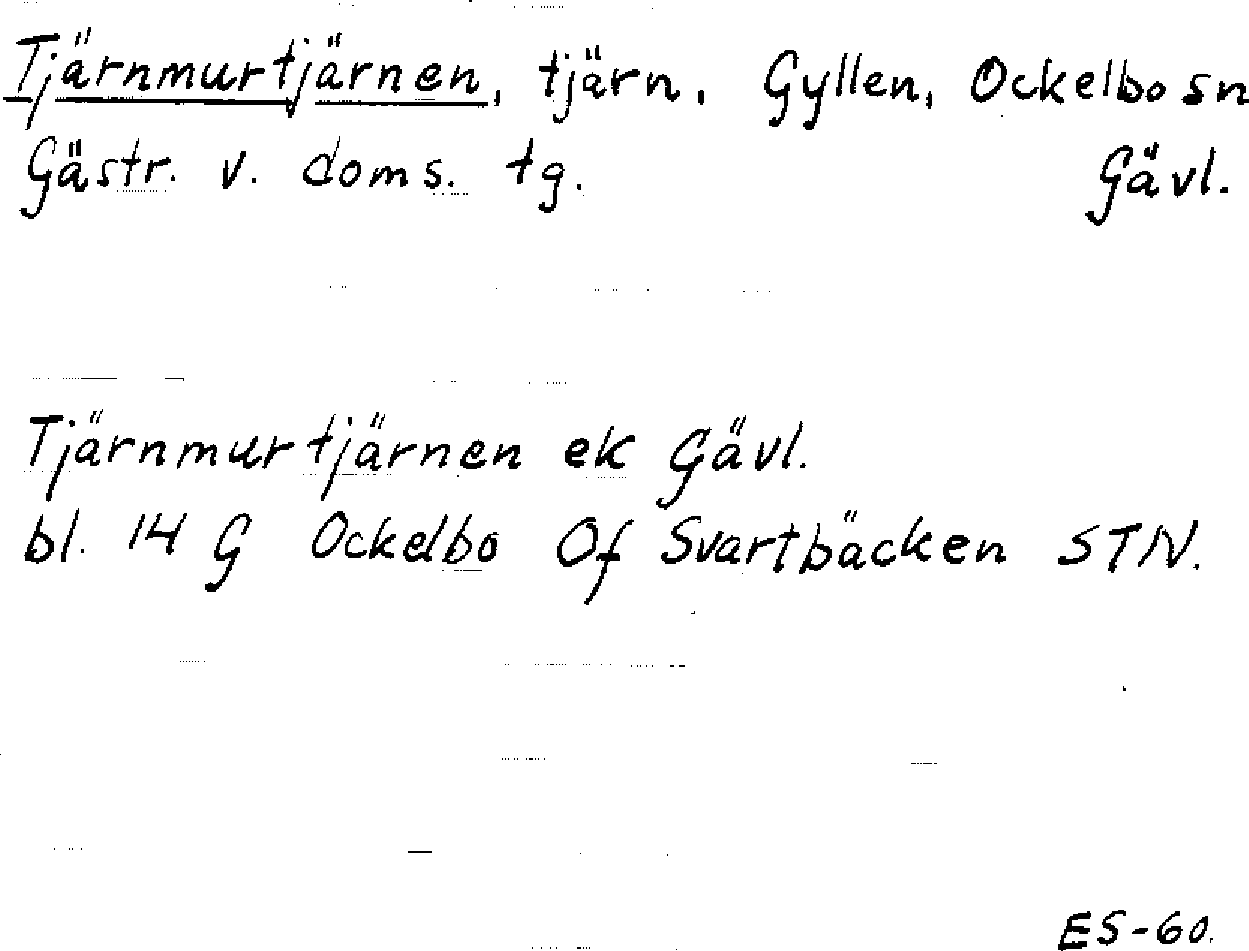 Tjärnmurtjärnen, tjärn, Gyllen, Ockelbo sn
Gästr. v. doms. tg. Gävl.
Tjärnmurtjärnen ek Gävl.
bl. 14 G Ockelbo Of Svartbäcken STN.
ES-60.